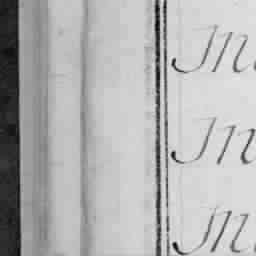 In
In
In